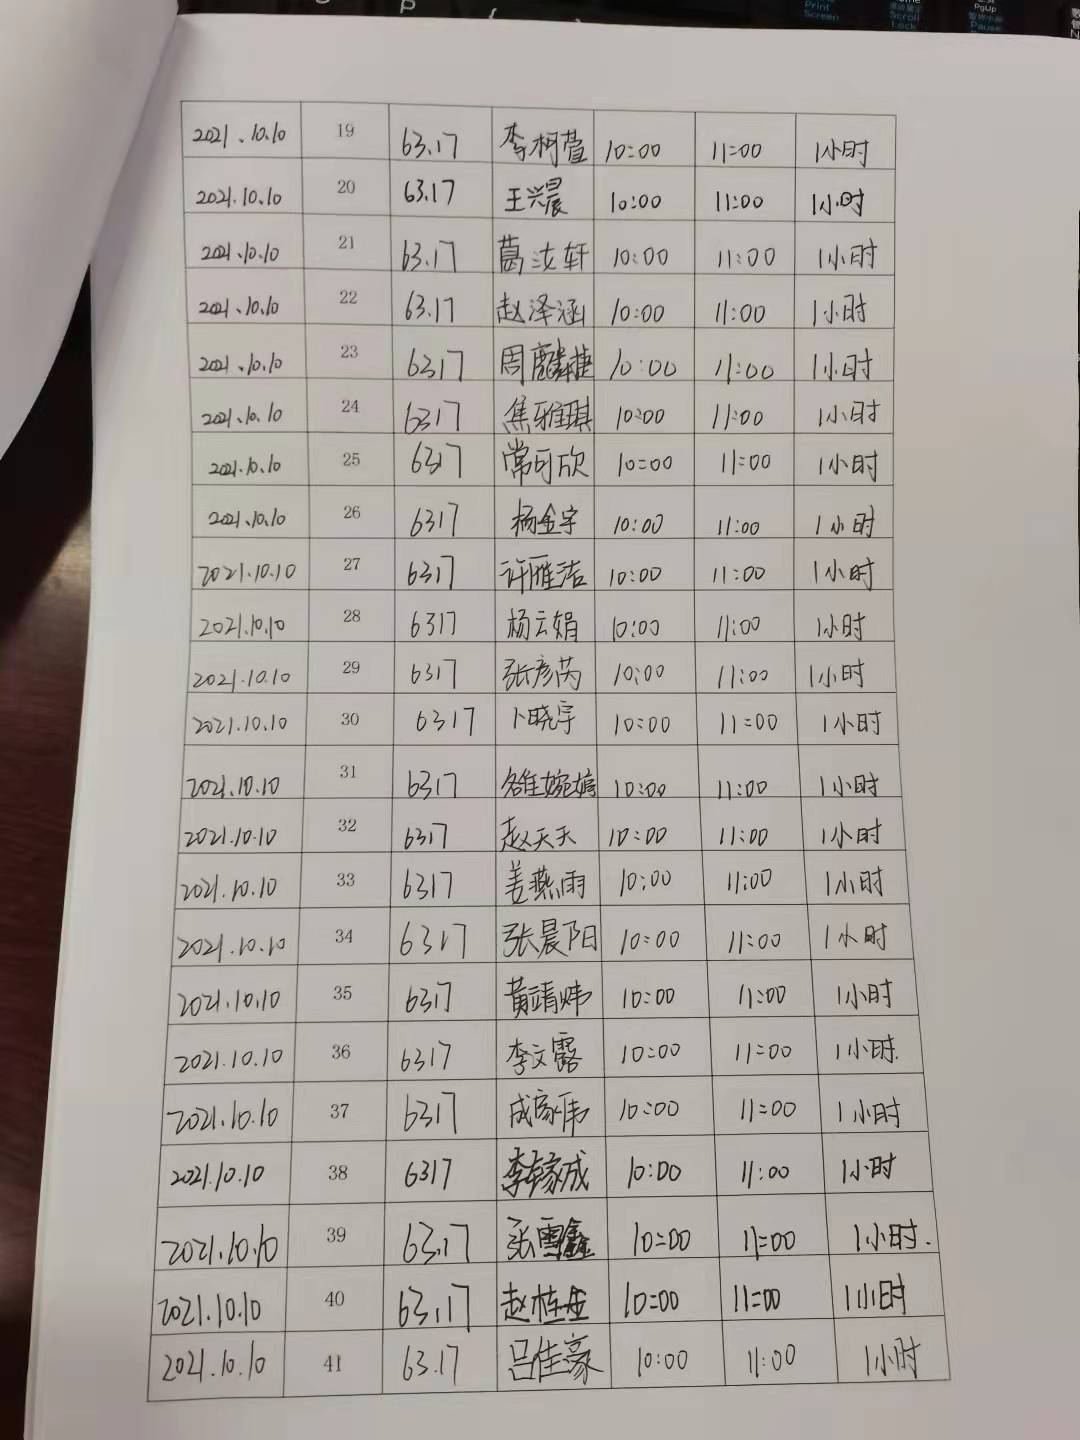 Print Screen
Scroll Lock
PgUp
Pause
2021.10.10 19 63.17 李柯萱 10:00 11:00 1小时
2021.10.10 20 63.17 王兴晨 10:00 11:00 1小时
2021.10.10 21 63.17 葛汝轩 10:00 11:00 1小时
2021.10.10 22 63.17 赵泽涵 10:00 11:00 1小时
2021.10.10 23 6317 周麟捷 10:00 11:00 1小时
2021.10.10 24 6317 焦雅琪 10:00 11:00 1小时
2021.10.10 25 6317 常可欣 10:00 11:00 1小时
2021.10.10 26 6317 杨金宇 10:00 11:00 1小时
2021.10.10 27 6317 许雁洁 10:00 11:00 1小时
2021.10.10 28 6317 杨云娟 10:00 11:00 1小时
2021.10.10 29 6317 张彦芮 10:00 11:00 1小时
2021.10.10 30 6317 卜晓宇 10:00 11:00 1小时
2021.10.10 31 6317 雒婉婷 10:00 11:00 1小时
2021.10.10 32 6317 赵天天 10:00 11:00 1小时
2021.10.10 33 6317 姜燕雨 10:00 11:00 1小时
2021.10.10 34 6317 张晨阳 10:00 11:00 1小时
2021.10.10 35 6317 黄靖炜 10:00 11:00 1小时
2021.10.10 36 6317 李文露 10:00 11:00 1小时.
2021.10.10 37 6317 成家伟 10:00 11:00 1小时
2021.10.10 38 6317 李稼成 10:00 11:00 1小时
2021.10.10 39 63.17 张雪鑫 10:00 11:00 1小时.
2021.10.10 40 63.17 赵桂金 10:00 11:00 1小时
2021.10.10 41 63.17 吕佳豪 10:00 11:00 1小时